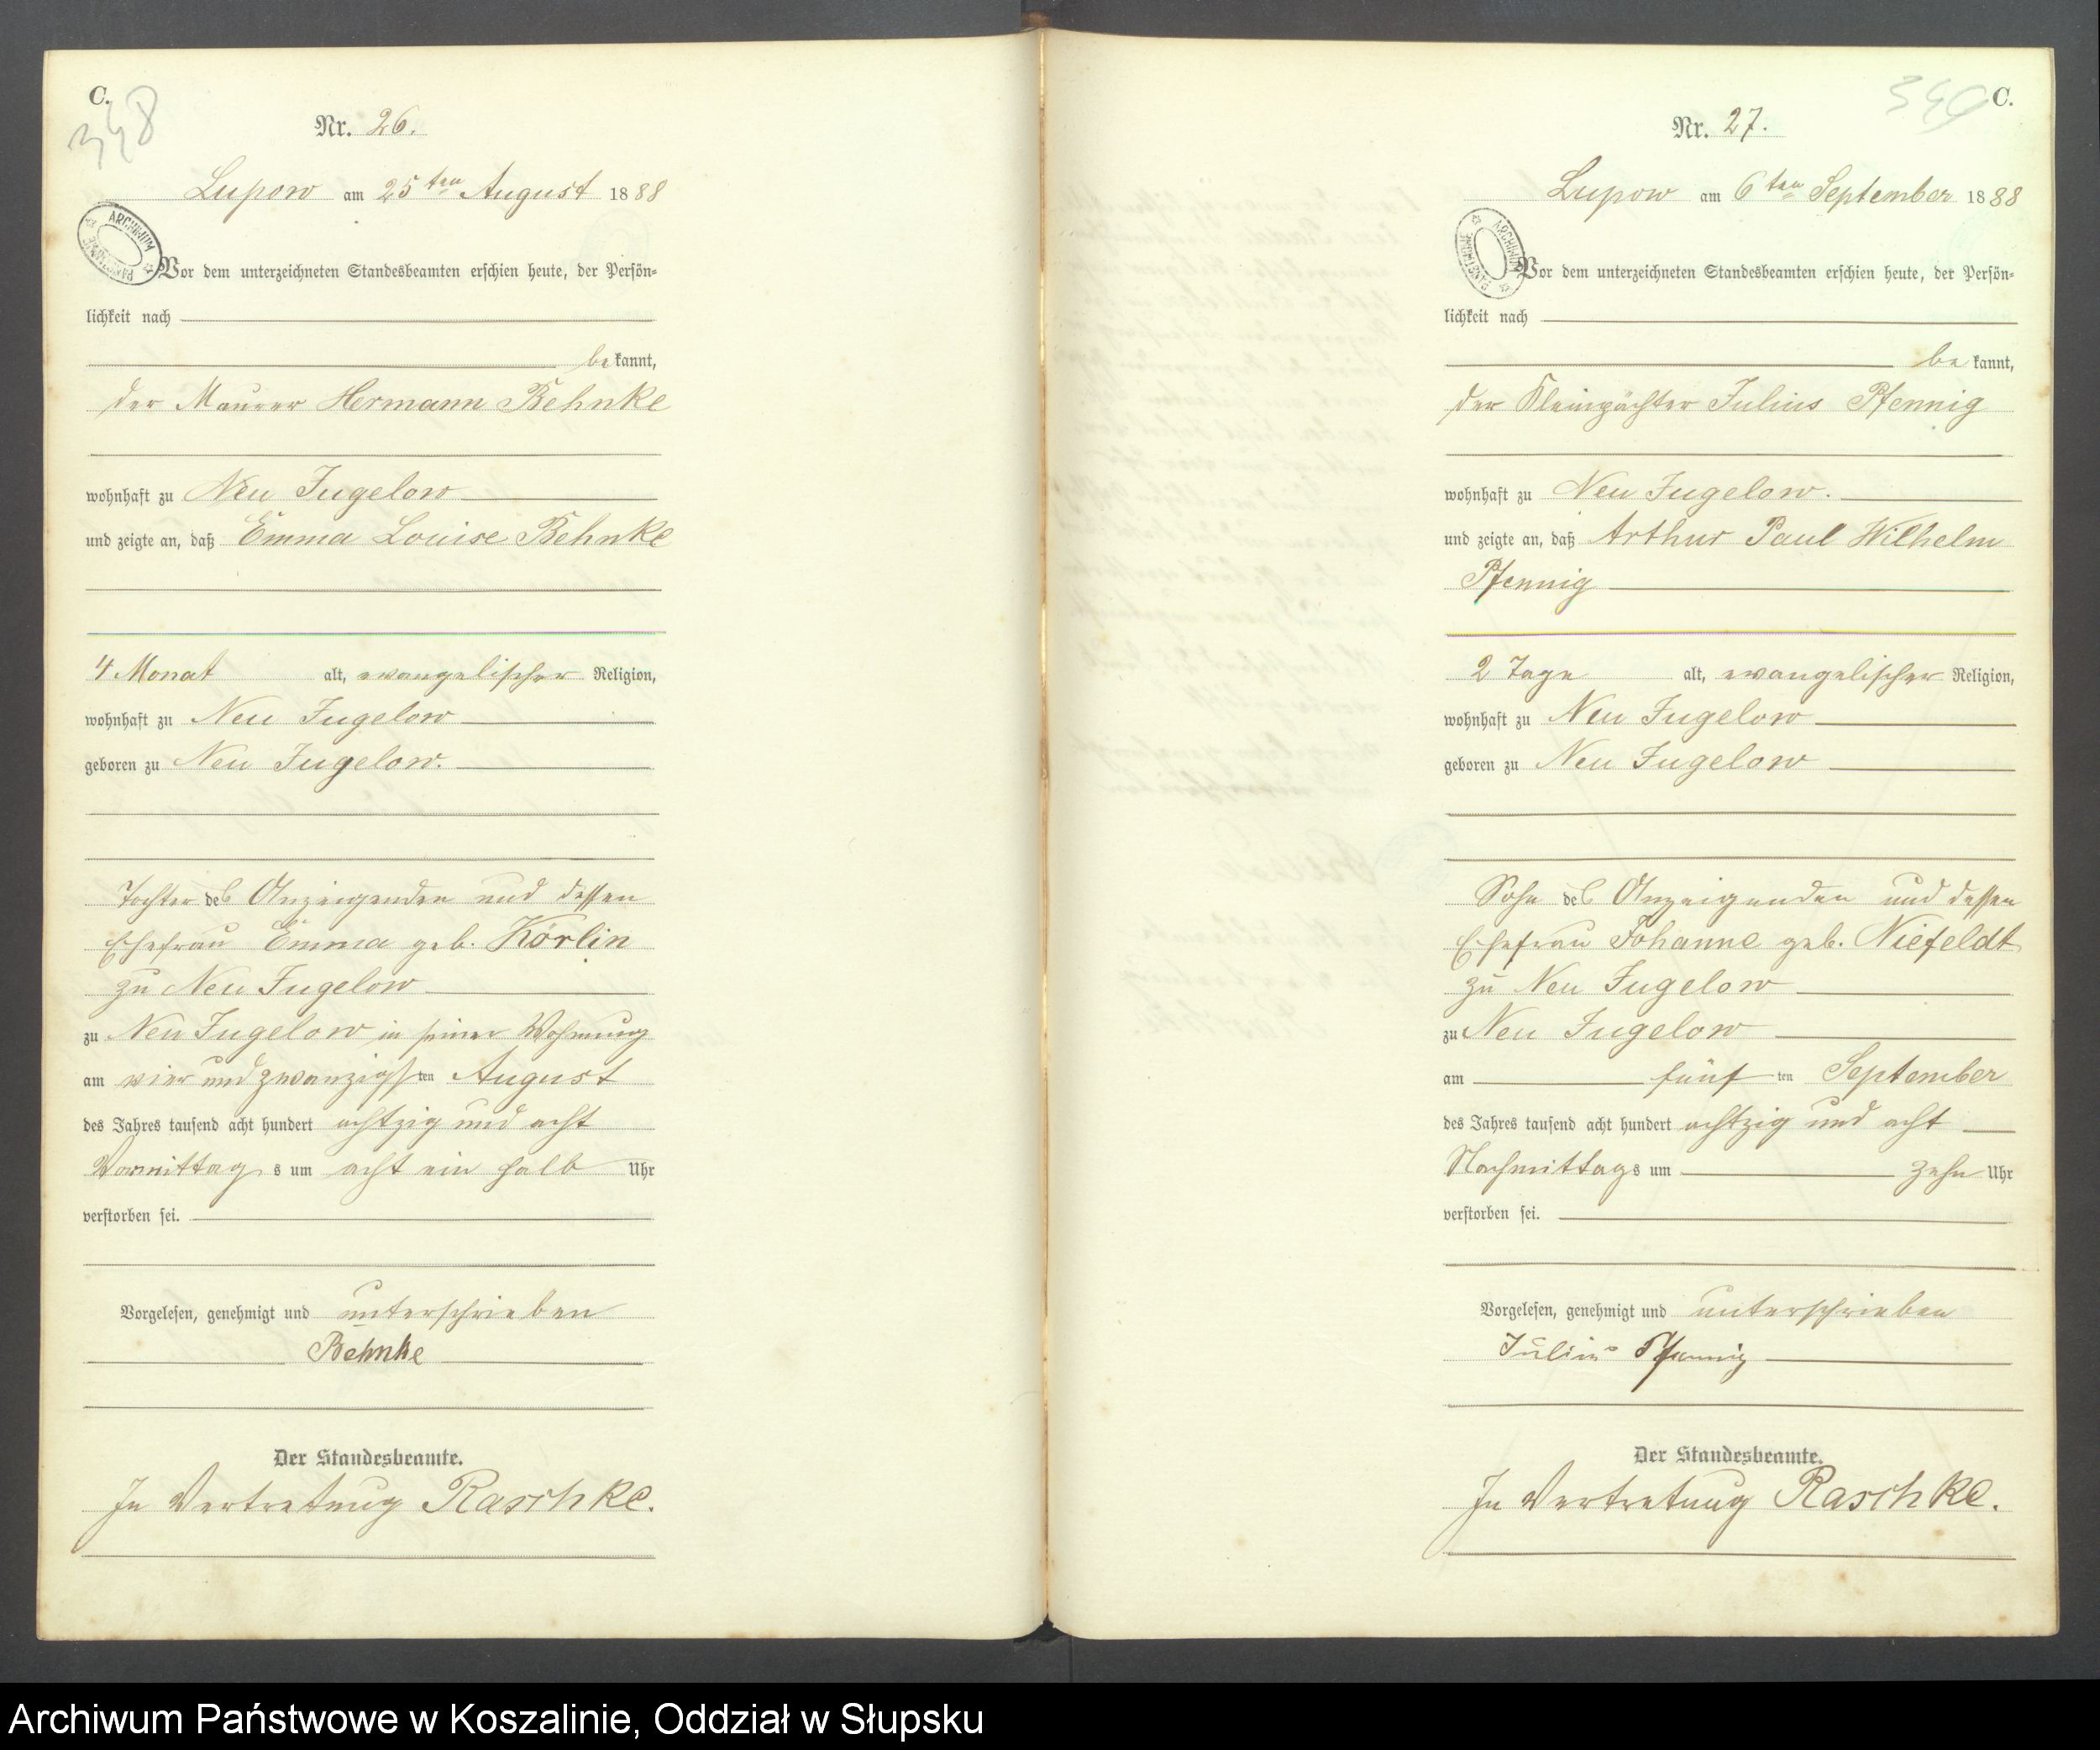 C.
348
Nr. 26.
Lupow am 25ten August 1888
ARCHIWUM PAŃSTWOWE
Vor dem unterzeichneten Standesbeamten erschien heute, der Persön-
lichkeit nach
bekannt,
der Maurer Hermann Behnke
wohnhaft zu Neu Jugelow
und zeigte an, daß Emma Louise Behnke
4 Monat alt, evangelischer Religion,
wohnhaft zu Neu Jugelow
geboren zu Neu Jugelow.
Tochter des Anzeigenden und dessen
Ehefrau Emma geb. Körlin
zu Neu Jugelow
zu Neu Jugelow in seiner Wohnung
am vier und zwanzigsten August
des Jahres tausend acht hundert achtzig und acht
Vormittags um acht ein halb Uhr
verstorben sei.
Vorgelesen, genehmigt und unterschrieben
Behnke
Der Standesbeamte.
In Vertretung Raschke.
C.
Nr. 27.
Lupow am 6ten September 1888
ARCHIWUM PAŃSTWOWE
Vor dem unterzeichneten Standesbeamten erschien heute, der Persön-
lichkeit nach
bekannt,
der Kleinpächter Julius Pfennig
wohnhaft zu Neu Jugelow.
und zeigte an, daß Arthur Paul Wilhelm
Pfennig
2 Tage alt, evangelischer Religion,
wohnhaft zu Neu Jugelow
geboren zu Neu Jugelow
Sohn des Anzeigenden und dessen
Ehefrau Johanne geb. Niefeldt
zu Neu Jugelow
zu Neu Jugelow
am fünften September
des Jahres tausend acht hundert achtzig und acht
Nachmittags um zehn Uhr
verstorben sei.
Vorgelesen, genehmigt und unterschrieben
Julius Pfennig
Der Standesbeamte.
In Vertretung Raschke.
Archiwum Państwowe w Koszalinie, Oddział w Słupsku